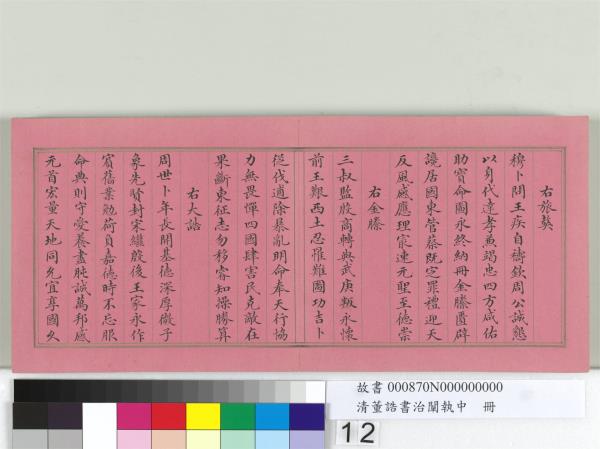 右旅獒
穆卜問王疾自禱欽周公誠懇
以身代達孝兼竭忠四方咸佑
助寶命圖永終納冊金縢匱辟
讒居國東管蔡既定罪禮迎天
反風感應理寔速元聖至德崇
右金縢
三叔監殷商轉與武庚叛永懷
前王艱西土忍罹難圖功吉卜
從伐逋除暴亂明命奉天行協
力無畏憚四國肆害民克敵在
果斷東征志勿移睿知操勝算
右大誥
周世卜年長開基德深厚微子
象先賢封宋繼殷後王家永作
賓舊業勉荷負嘉德時不忘服
命典則守受養盡肫誠萬邦感
元首宏量天地同允宜享國久
故書 000870N000000000
清董誥書治闡執中 冊
12